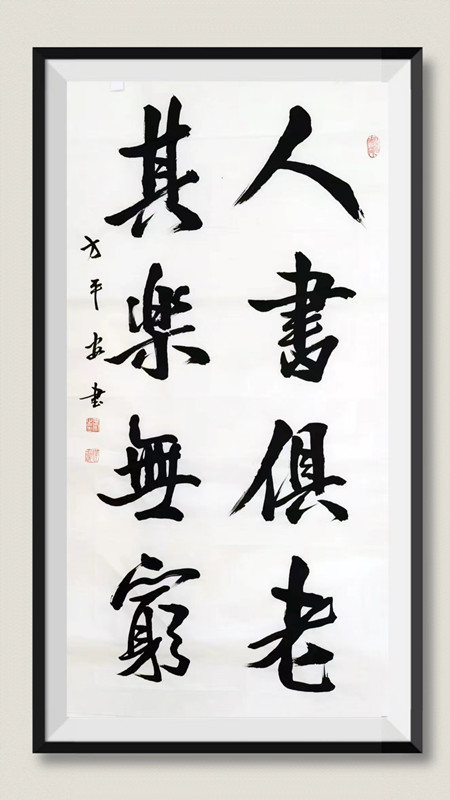 人書俱老
其樂無窮
方平安書